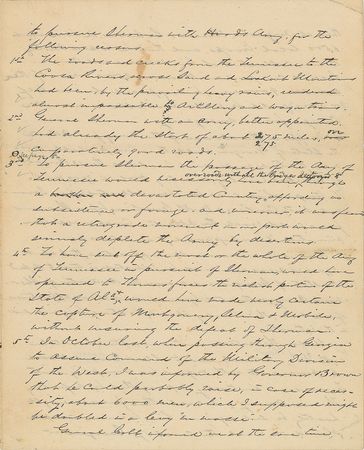 to pursue Sherman with Hood's Army, for the
following reasons.
1st The roads and creeks from the Tennessee to the
Coosa Rivers, across Sand and Lookout Mountains
had been, by the prevailing heavy rains, rendered
almost impassable to Artillery and wagon trains.
2nd General Sherman with an Army, better appointed,
had already the start of about 275 miles, over
275
comparatively good roads.
3rd To pursue Sherman, the passage of the Army of
Tennessee would necessarily have been through
over roads with all the bridges destroyed &
a devastated Country, affording no
subsistence or forage. and, moreover, it was feared
that a retrograde movement on our part would
seriously deplete the Army by desertions.
4th To have sent off the most or the whole of the Army
of Tennessee in pursuit of Sherman, would have
opened to Thomas' forces the richest portion of the
State of Ala, & would have made nearly certain
the capture of Montgomery, Selma & Mobile,
without insuring the defeat of Sherman.
5th In October last, when passing through Georgia
to assume Command of the Military Division
of the West, I was informed by Governor Brown
that he could probably raise, in case of neces-
sity, about 6000 men, which I supposed might
be doubled in a levy "en masse".
General Cobb informed me at the same time,